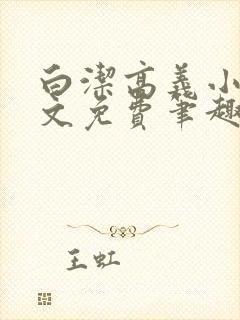 白潔高義小
文免費筆趣
王虹